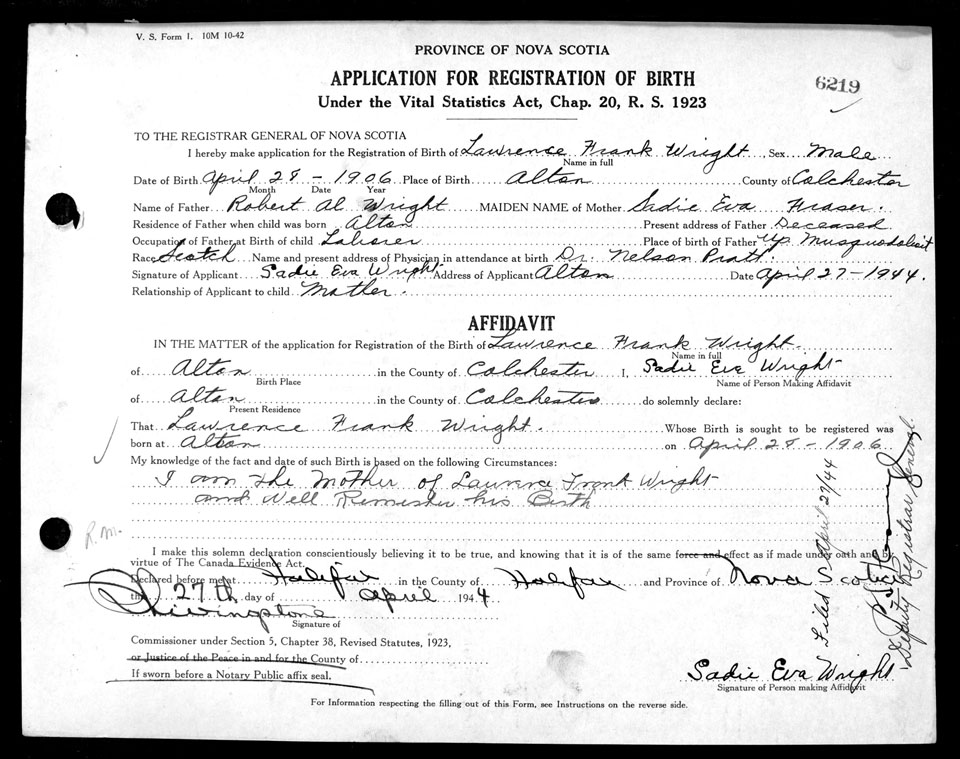 V. S. Form 1. 10M 10-42
PROVINCE OF NOVA SCOTIA
6219
APPLICATION FOR REGISTRATION OF BIRTH
Under the Vital Statistics Act, Chap. 20, R. S. 1923
TO THE REGISTRAR GENERAL OF NOVA SCOTIA
I hereby make application for the Registration of Birth of Lawrence Frank Wright, Sex Male
Name in full
Date of Birth April 28 - 1906 Place of Birth Alton County of Colchester
Month Date Year
Name of Father Robert Al Wright MAIDEN NAME of Mother Sadie Eva Fraser.
Residence of Father when child was born Alton Present address of Father Deceased
Occupation of Father at Birth of child Laborer Place of Birth of Father Up. Musquodoboit
Race Scotch Name and present address of Physician in attendance at birth Dr. Nelson Pratt.
Signature of Applicant Sadie Eva Wright Address of Applicant Alton Date April 27-1944.
Relationship of Applicant to child Mother.
AFFIDAVIT
IN THE MATTER of the application for Registration of the Birth of Lawrence Frank Wright.
Name in full
of Alton in the County of Colchester I, Sadie Eva Wright
Birth Place Name of Person Making Affidavit
of Alton in the County of Colchester do solemnly declare:
Present Residence
That Lawrence Frank Wright. Whose Birth is sought to be registered was
born at Alton on April 28 - 1906
My knowledge of the fact and date of such Birth is based on the following Circumstances:
I am the Mother of Laurence Frank Wright
and Well Remember his Birth
R.M.
I make this solemn declaration conscientiously believing it to be true, and knowing that it is of the same force and effect as if made under oath and by
virtue of The Canada Evidence Act.
Declared before me at Halifax in the County of Halifax and Province of Nova Scotia
the 27th day of April 1944
Livingstone
Signature of
Commissioner under Section 5, Chapter 38, Revised Statutes, 1923,
or Justice of the Peace in and for the County of
If sworn before a Notary Public affix seal.
Sadie Eva Wright
Signature of Person making Affidavit
For Information respecting the filling out of this Form, see Instructions on the reverse side.
Filed April 29/44
Deputy Registrar General.